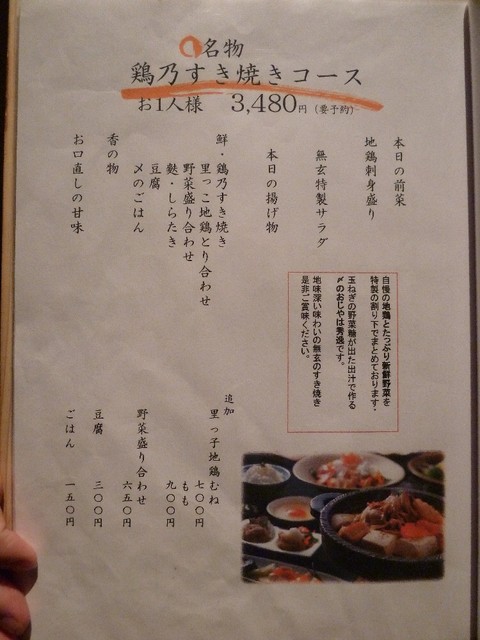 名物
鶏乃すき焼きコース
お1人様 3,480円(要予約)
本日の前菜
地鶏刺身盛り
無玄特製サラダ
本日の揚げ物
鮮・鶏乃すき焼き
里っこ地鶏とり合わせ
野菜盛り合わせ
麩・しらたき
豆腐
〆のごはん
香の物
お口直しの甘味
自慢の地鶏とたっぷり新鮮野菜を
特製の割り下でまとめております。
玉ねぎの野菜糖が出た出汁で作る
〆のおじやは秀逸です。
地味深い味わいの無玄のすき焼き
是非ご賞味ください。
追加
里っ子地鶏むね 七〇〇円
もも 九〇〇円
野菜盛り合わせ 六五〇円
豆腐 三〇〇円
ごはん 一五〇円